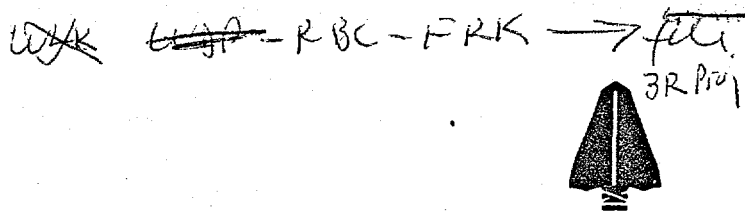 WYK WJP - RBC - FRK → file
3R Proj